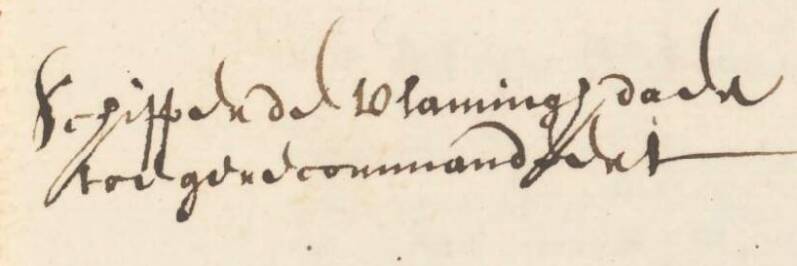 Schipper de Vlamingh daer
toe gerecommandeert